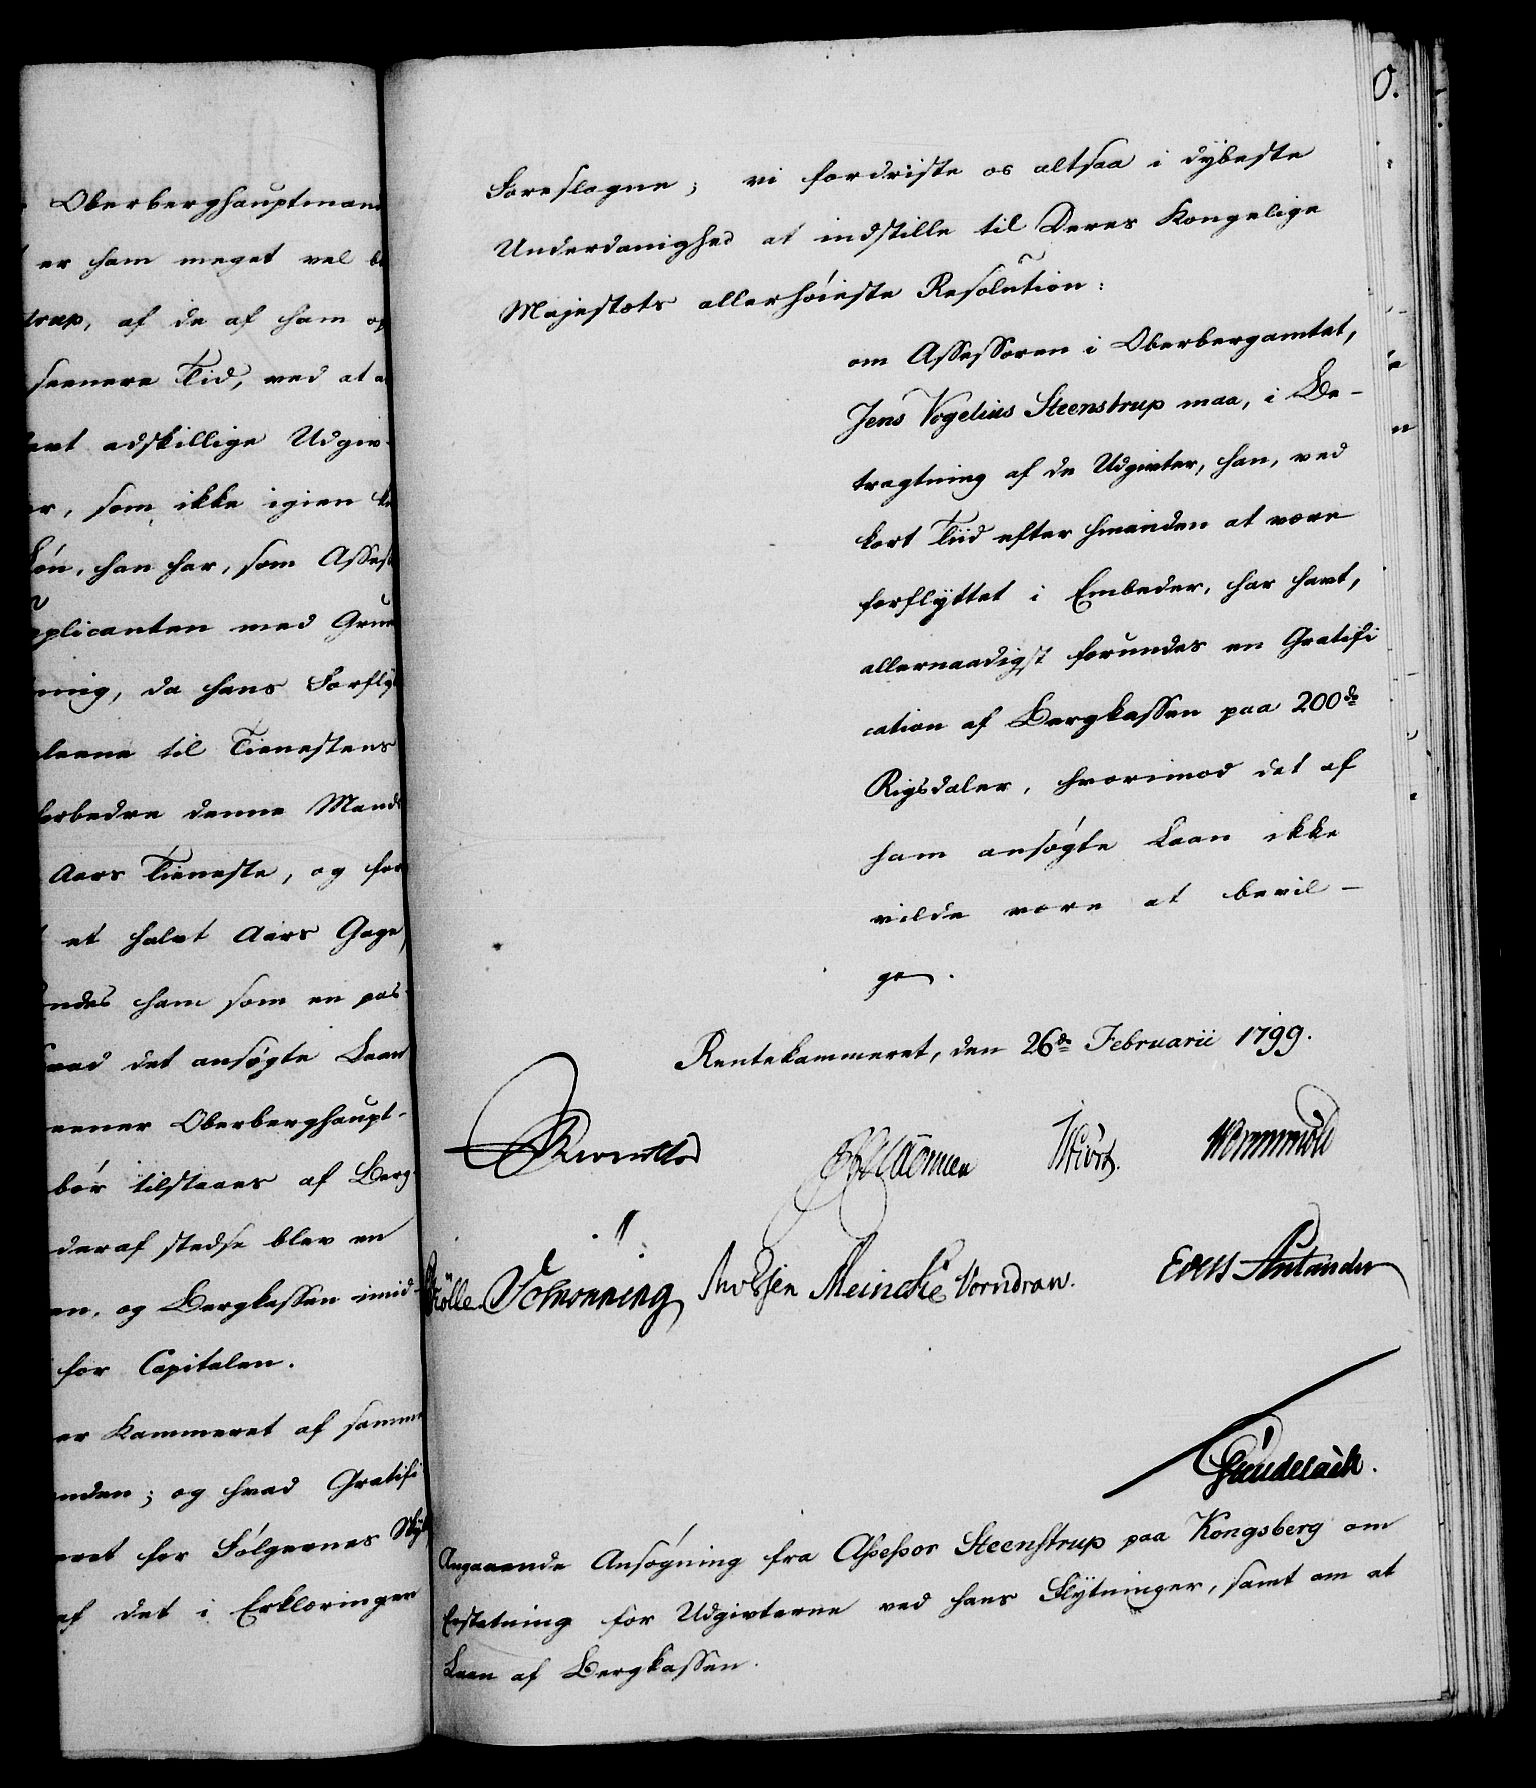 Oberberghauptmand
er ham meget vel be
trup, af de af ham op
seenere Tid, ved at a
havt adskillige Udgiv-
er, som ikke igien k
Løn, han har, som Assess
upplicanten med Grun
ning, da hans Forfly
leene til Tienestens
forbedre denne Mands
Aars Tieneste, og for
et halvt Aars Gage,
undes ham som en pas-
det ansøgte Laan
meener Oberberghaupt-
bør tilstaaes af Berg-
deraf stedse blev en
en, og Bergkassen imid-
for Capitalen.
er Kammeret af samme
nden; og hvad Gratifi
eret for Følgernes
af det i Erklæringen
0.
Foreslagne; vi fordriste os altsaa i dybeste
Underdanighed at indstille til Deres Kongelige
Majestæts allerhøieste Resolution:
om Assessoren i Oberbergamtet,
Jens Vogelius Steenstrup maa, i Be-
tragtning af de Udgivter, han, ved
kort Tiid efter hinanden at være
forflyttet i Embeder, har havt,
allernaadigst forundes en Gratifi
cation af Bergkassen paa 200de
Rigsdaler, hvorimod det af
ham ansøgte Laan ikke
vilde være at bevil-
ge.
Rentekammeret, den 26de Februarii 1799.
Reventlow Hiort Wormskiold
Schrønning Meincke Vorndran.
Angaaende Ansøgning fra Assessor Steenstrup paa Kongsberg om
Erstatning for Udgivterne ved hans Flytninger, samt om at
Laan af Bergkassen.